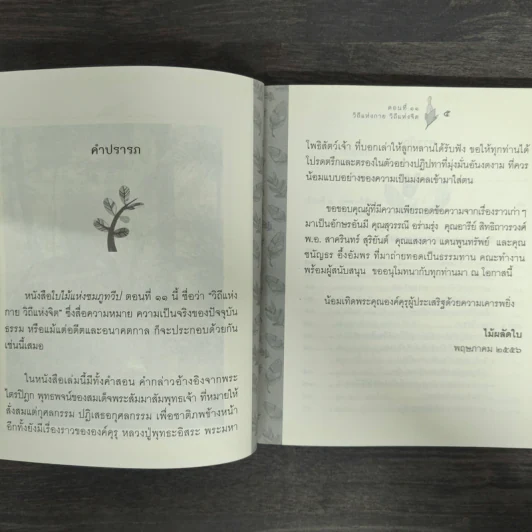 คำปรารภ
หนังสือใบไม้แห่งชมภูทวีป ตอนที่ ๑๑ นี้ ชื่อว่า "วิถีแห่ง
กาย วิถีแห่งจิต" ซึ่งสื่อความหมาย ความเป็นจริงของปัจจุบัน
ธรรม หรือแม้แต่อดีตและอนาคตกาล ก็จะประกอบด้วยกัน
เช่นนี้เสมอ
ในหนังสือเล่มนี้มีทั้งคำสอน คำกล่าวอ้างอิงจากพระ
ไตรปิฎก พุทธพจน์ของสมเด็จพระสัมมาสัมพุทธเจ้า ที่หมายให้
สั่งสมแต่กุศลกรรม ปฏิเสธอกุศลกรรม เพื่อชาติภพข้างหน้า
อีกทั้งยังมีเรื่องราวขององค์คุรุ หลวงปู่พุทธะอิสระ พระมหา
ตอนที่ ๑๑
วิถีแห่งกาย วิถีแห่งจิต
๕
โพธิสัตว์เจ้า ที่บอกเล่าให้ลูกหลานได้รับฟัง ขอให้ทุกท่านได้
โปรดตรึกและตรองในตัวอย่างปฏิปทาที่มุ่งมั่นอันงดงาม ที่ควร
น้อมแบบอย่างของความเป็นมงคลเข้ามาใส่ตน
ขอขอบคุณผู้ที่มีความเพียรถอดข้อความจากเรื่องราวเก่า ๆ
มาเป็นอักษรอันมี คุณสุวรรณี อร่ามรุ่ง คุณอารีย์ สิทธิถาวรวงศ์
พ.อ. สาครินทร์ สุริยันต์ คุณแสงดาว แดนพูนทรัพย์ และคุณ
ชนัญธร อึ้งอัมพร ที่มาถ่ายทอดเป็นธรรมทาน คณะทำงาน
พร้อมผู้สนับสนุน ขออนุโมทนากับทุกท่านมา ณ โอกาสนี้
น้อมเทิดพระคุณองค์คุรุผู้ประเสริฐด้วยความเคารพยิ่ง
ไม้ผลัดใบ
พฤษภาคม ๒๕๕๖